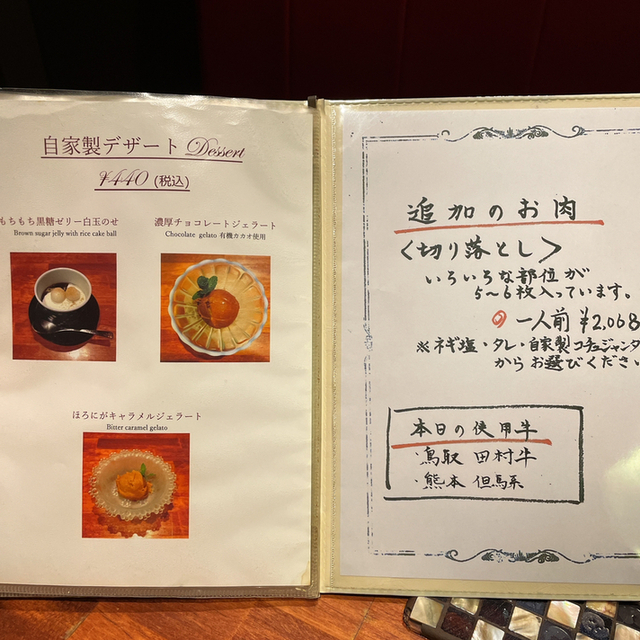 自家製デザート Dessert
¥440 (税込)
もちもち黒糖ゼリー白玉のせ
Brown sugar jelly with rice cake ball
濃厚チョコレートジェラート
Chocolate gelato 有機カカオ使用
ほろにがキャラメルジェラート
Bitter caramel gelato
追加のお肉
〈切り落とし〉
いろいろな部位が
5〜6枚入っています。
一人前 ¥2,068
※ネギ塩・タレ・自家製コチュジャンタ
からお選びくださ
本日の使用牛
・鳥取 田村牛
・熊本 但馬系